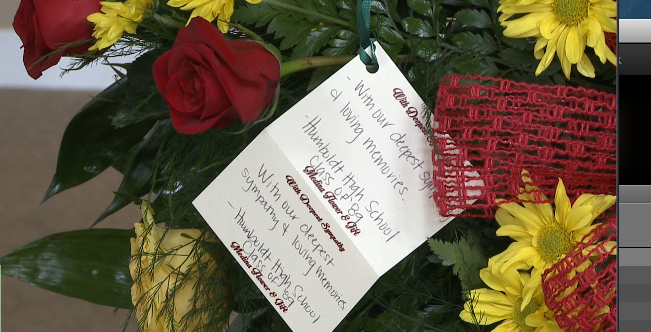 With Deepest
- With our deepest sym
& loving memories.
- Humboldt High School
Class of '89
Medina Flower & Gift
With Deepest Sympathy
With our deepest
sympathy & loving memories
- Humboldt High School
Class of '89
Medina Flower & Gift